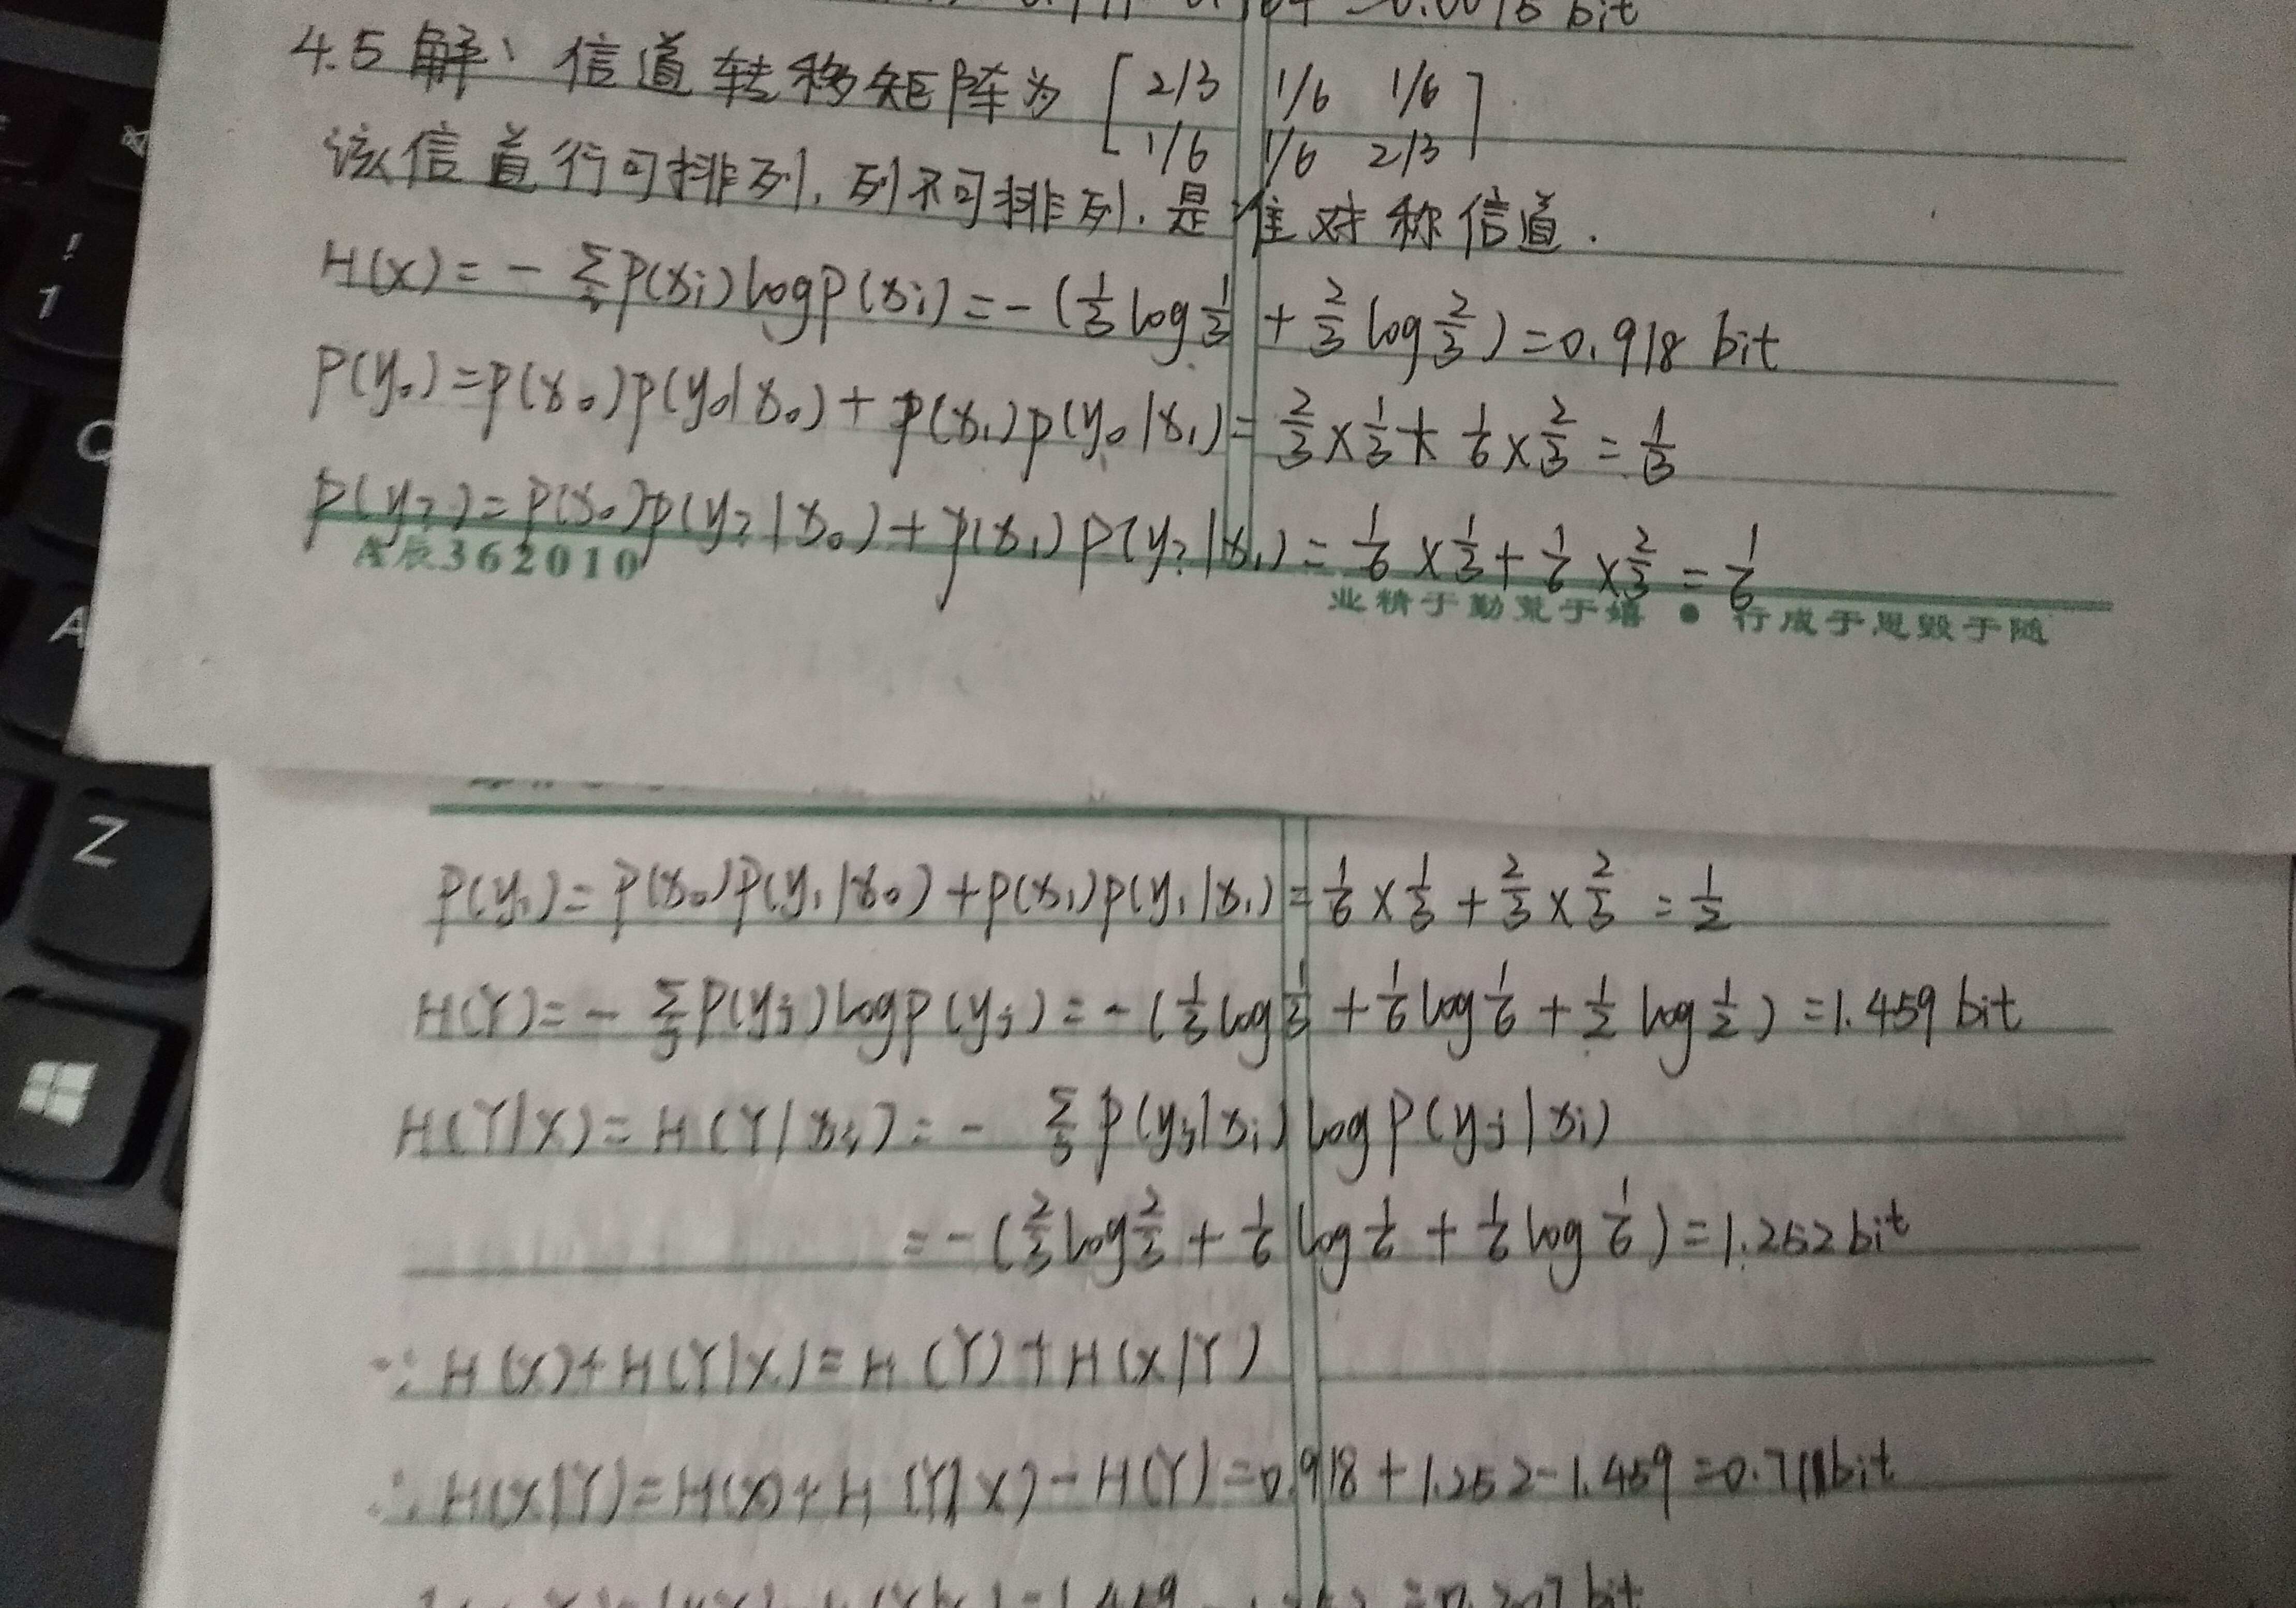 bit
4.5 解、信道转移矩阵为 [2/3 1/6 1/6
1/6 1/6 2/3]
该信道行可排列,列不可排列.是准对称信道.
H(X)=-∑P(xi)logP(xi)=-(1/3log1/3+2/3log2/3)=0.918 bit
P(y0)=P(x0)P(y0|x0)+P(x1)P(y0|x1)=2/3×1/3+1/6×2/3=1/3
P(y2)=P(x0)P(y2|x0)+P(x1)P(y2|x1)=1/6×1/3+1/6×2/3=1/6
A辰362010
业精于勤荒于嬉 ● 行成于思毁于随
P(y1)=P(x0)P(y1|x0)+P(x1)P(y1|x1)=1/6×1/3+2/3×2/3=1/2
H(Y)=-∑P(yj)logP(yj)=-(1/3log1/3+1/6log1/6+1/2log1/2)=1.459 bit
H(Y|X)=H(Y|xi)=-∑P(yj|xi)logP(yj|xi)
=-(2/3log2/3+1/6log1/6+1/6log1/6)=1.252bit
∵H(X)+H(Y|X)=H(Y)+H(X|Y)
∴H(X|Y)=H(X)+H(Y|X)-H(Y)=0.918+1.252-1.459=0.711bit